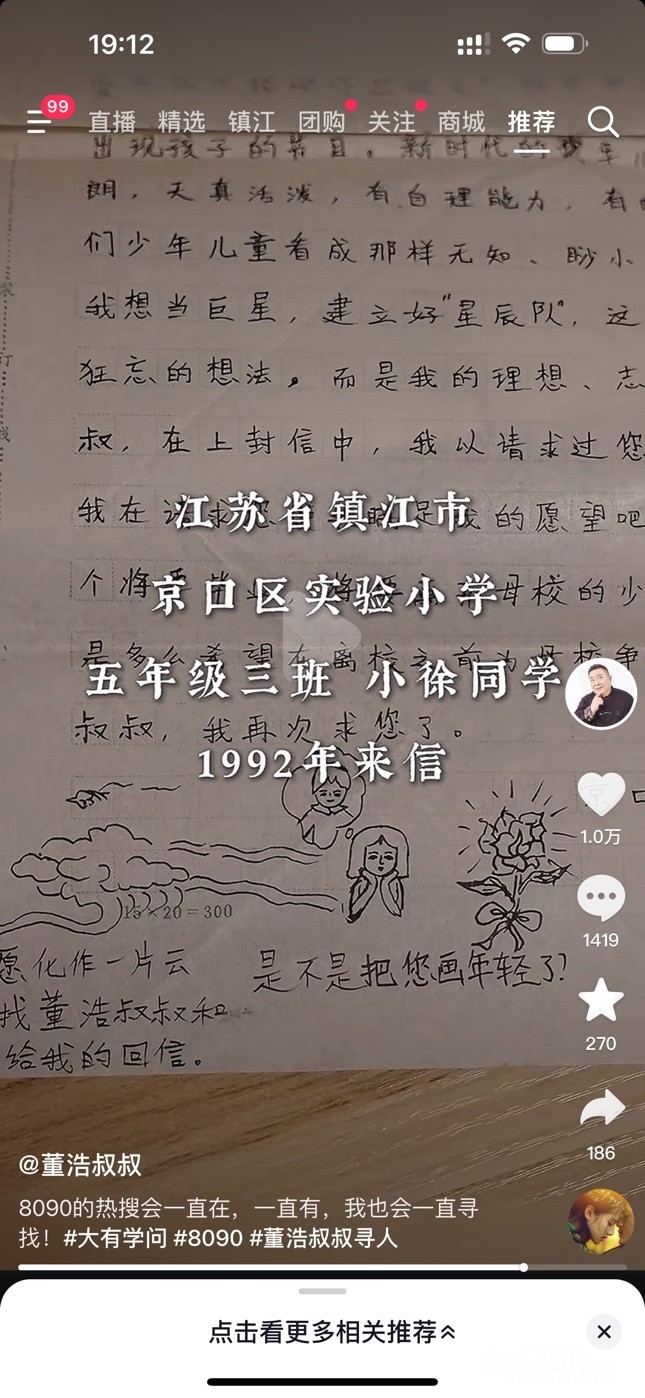 19:12
99
直播 精选 镇江 团购 关注 商城 推荐
出现孩子的节目。新时代的少年儿
朗，天真活泼，有自理能力，有
们少年儿童看成那样无知、眇小
我想当巨星，建立好"星辰队"，这
狂忘的想法。而是我的理想、志
叔，在上封信中，我以请求过您
我在请求您 足我的愿望吧
江苏省镇江市
个将 母校的少
京口区实验小学
是多么希望在离校之前为母校争
五年级三班 小徐同学
叔叔，我再次求您了。
1992年来信
京口
1.0万
1419
15×20=300
愿化作一片云
是不是把您画年轻了？
找董浩叔叔和
270
给我的回信。
186
@董浩叔叔
8090的热搜会一直在，一直有，我也会一直寻
找！#大有学问 #8090 #董浩叔叔寻人
点击看更多相关推荐
装
订
线